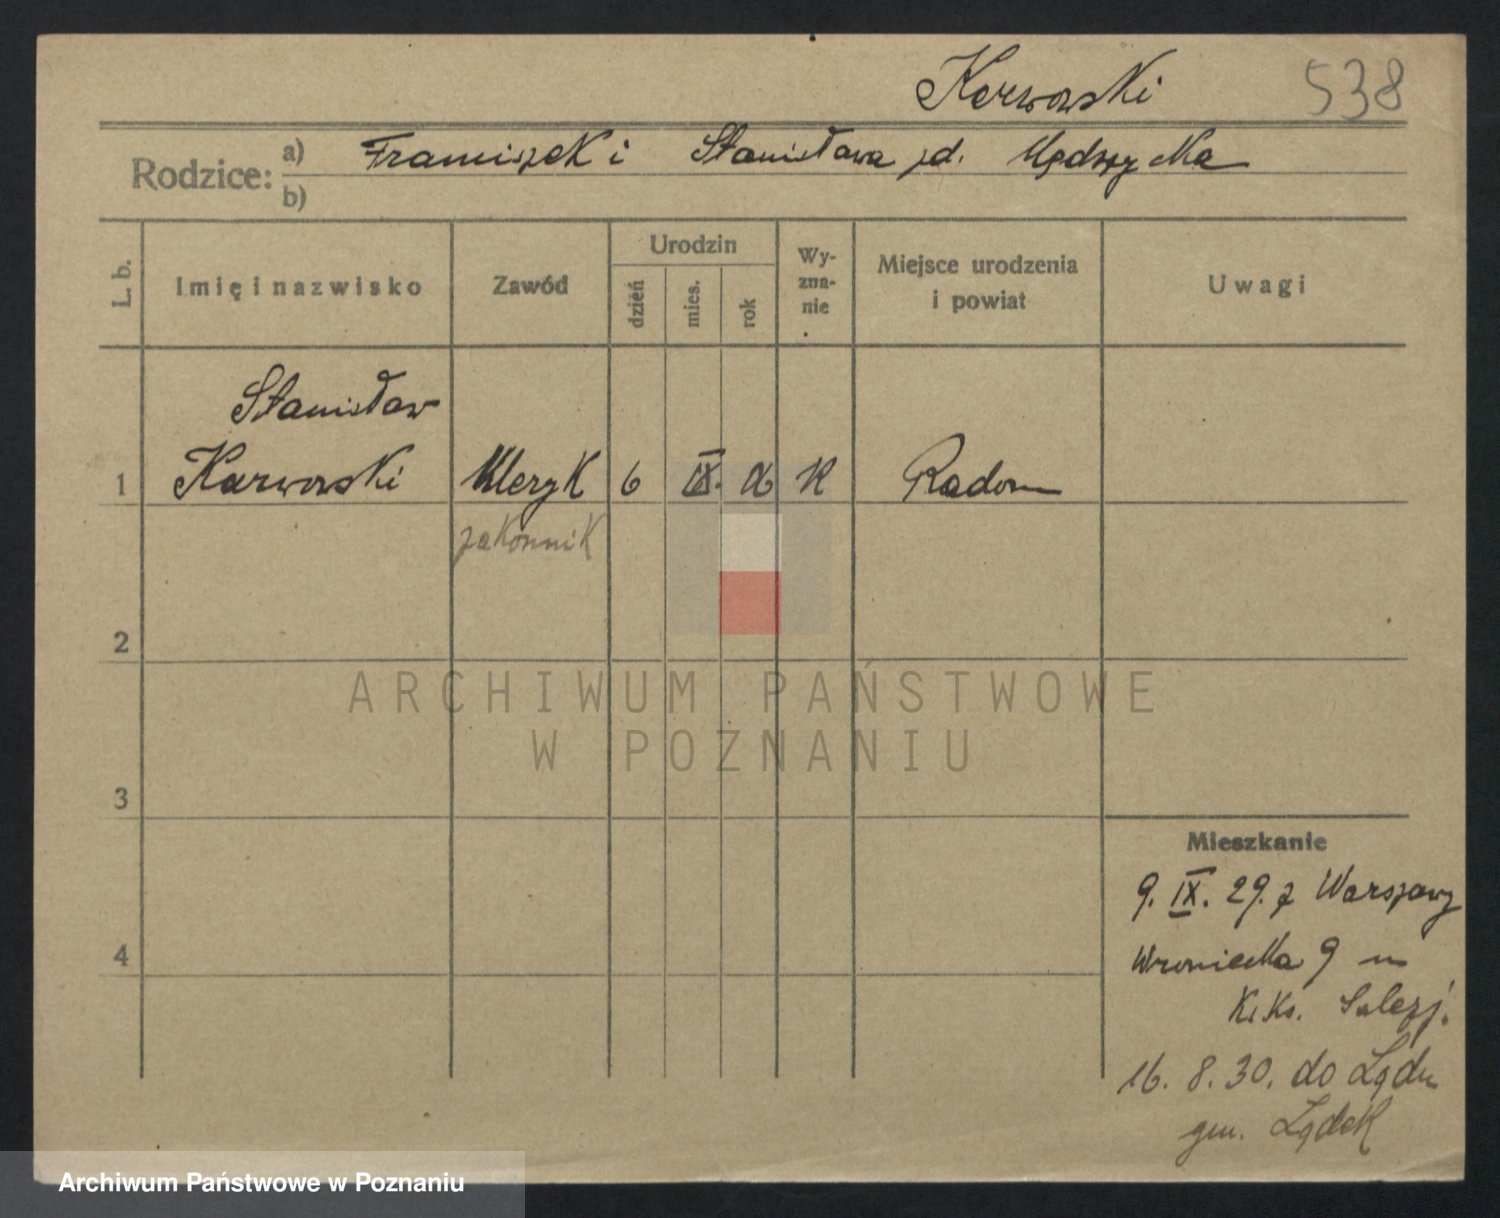 Karwowski 538
Rodzice: a) Franciszek i Stanisława zd.
b)
L. b.
Imię i nazwisko
Zawód
Urodzin
dzień
mies.
rok
Wy-
zna-
nie
Miejsce urodzenia
i powiat
Uwagi
Stanisław
1 Karwowski Kleryk 6 IX. 06 K Radom
zakonnik
2
ARCHIWUM PAŃSTWOWE
W POZNANIU
3
Mieszkanie
9. IX. 29. z Warszawy
4 Wroniecka 9 u
Salezj.
16. 8. 30. do Lądu
gm. Lądek
Archiwum Państwowe w Poznaniu